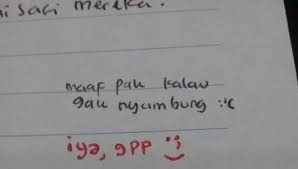 si sari mereka.
maaf pak kalau
gak nyambung :'(
iya, gpp :)